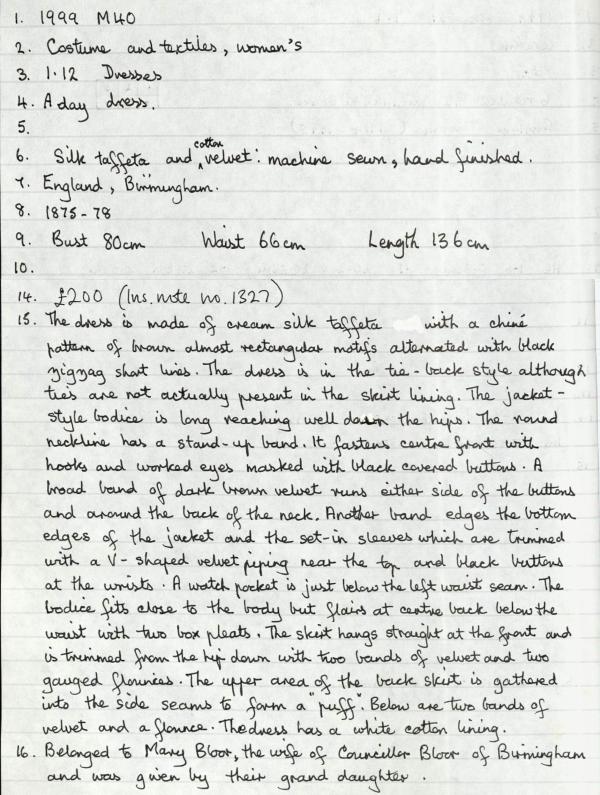 1. 1999 M40
2. Costume and textiles, women's
3. 1.12 Dresses
4. A day dress.
5.
6. Silk taffeta and cotton velvet: machine sewn, hand finished.
7. England, Birmingham.
8. 1875-78
9. Bust 80cm Waist 66cm Length 136cm
10.
14. £200 (Ins. note no. 1327)
15. The dress is made of cream silk taffeta with a chiné
pattern of brown almost rectangular motifs alternated with black
zigzag short lines. The dress is in the tie-back style although
ties are not actually present in the skirt lining. The jacket-
style bodice is long reaching well down the hips. The round
neckline has a stand-up band. It fastens centre front with
hooks and worked eyes marked with black covered buttons. A
broad band of dark brown velvet runs either side of the buttons
and around the back of the neck. Another band edges the bottom
edges of the jacket and the set-in sleeves which are trimmed
with a V-shaped velvet piping near the top and black buttons
at the wrists. A watch pocket is just below the left waist seam. The
bodice fits close to the body but flairs at centre back below the
waist with two box pleats. The skirt hangs straight at the front and
is trimmed from the hip down with two bands of velvet and two
gauged flounces. The upper area of the back skirt is gathered
into the side seams to form a "puff". Below are two bands of
velvet and a flounce. The dress has a white cotton lining.
16. Belonged to Mary Bloor, the wife of Councillor Bloor of Birmingham
and was given by their grand daughter.